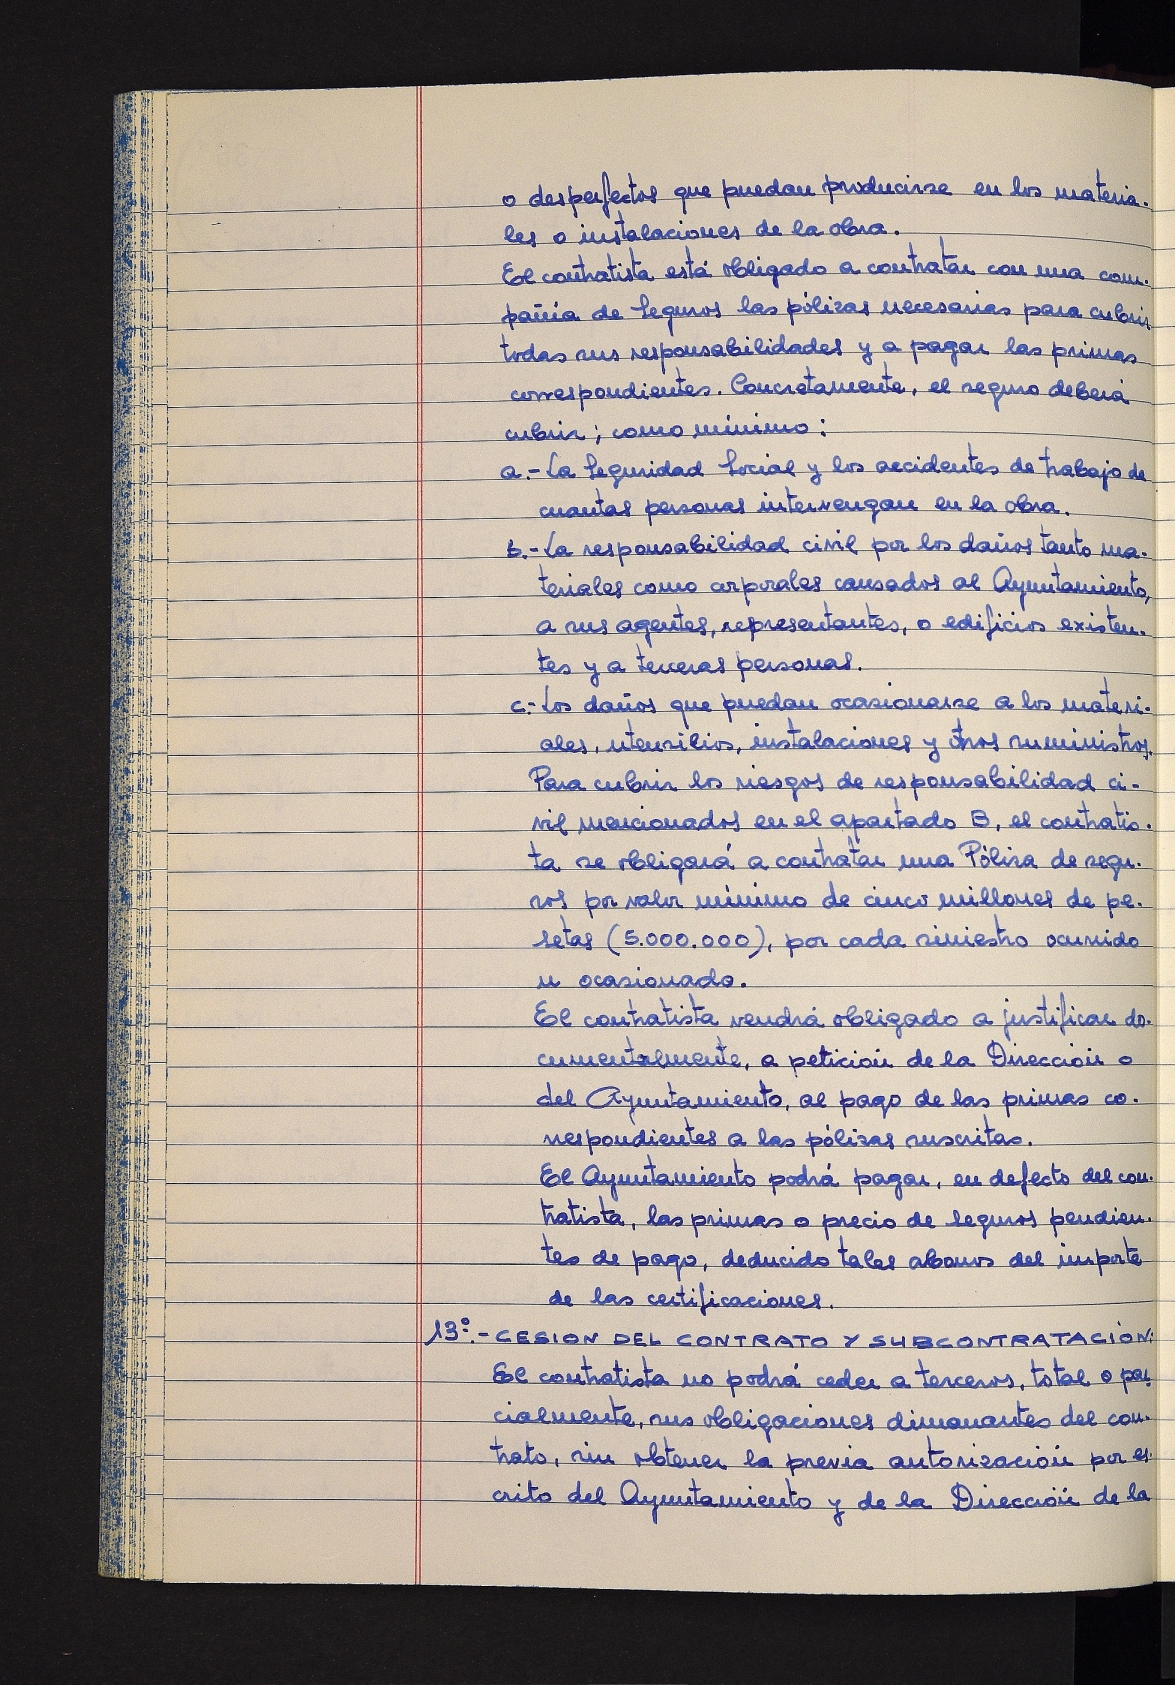 o desperfectos que puedan producirse en los materia-
les o instalaciones de la obra.
El contratista está obligado a contratar con una com-
pañía de Seguros las pólizas necesarias para cubrir
todas sus responsabilidades y a pagar las primas
correspondientes. Concretamente, el seguro deberá
cubrir; como mínimo:
a.- La Seguridad Social y los accidentes de trabajo de
cuantas personas intervengan en la obra.
b.- La responsabilidad civil por los daños tanto ma-
teriales como corporales causados al Ayuntamiento,
a sus agentes, representantes, o edificios existen-
tes y a terceras personas.
c.- Los daños que puedan ocasionarse a los materi-
ales, utensilios, instalaciones y otros suministros.
Para cubrir los riesgos de responsabilidad ci-
vil mencionados en el apartado B, el contratis-
ta se obligará a contratar una Póliza de segu-
ros por valor mínimo de cinco millones de pe-
setas (5.000.000), por cada siniestro ocurrido
u ocasionado.
El contratista vendrá obligado a justificar do-
cumentalmente, a petición de la Dirección o
del Ayuntamiento, al pago de las primas co-
rrespondientes a las pólizas suscritas.
El Ayuntamiento podrá pagar, en defecto del con-
tratista, las primas o precio de Seguros pendien-
tes de pago, deducido tales abonos del importe
de las certificaciones.
13º.- CESION DEL CONTRATO Y SUBCONTRATACIÓN:
El contratista no podrá ceder a terceros, total o par-
cialmente, sus obligaciones dimanantes del con-
trato, sin obtener la previa autorización por es-
crito del Ayuntamiento y de la Dirección de la